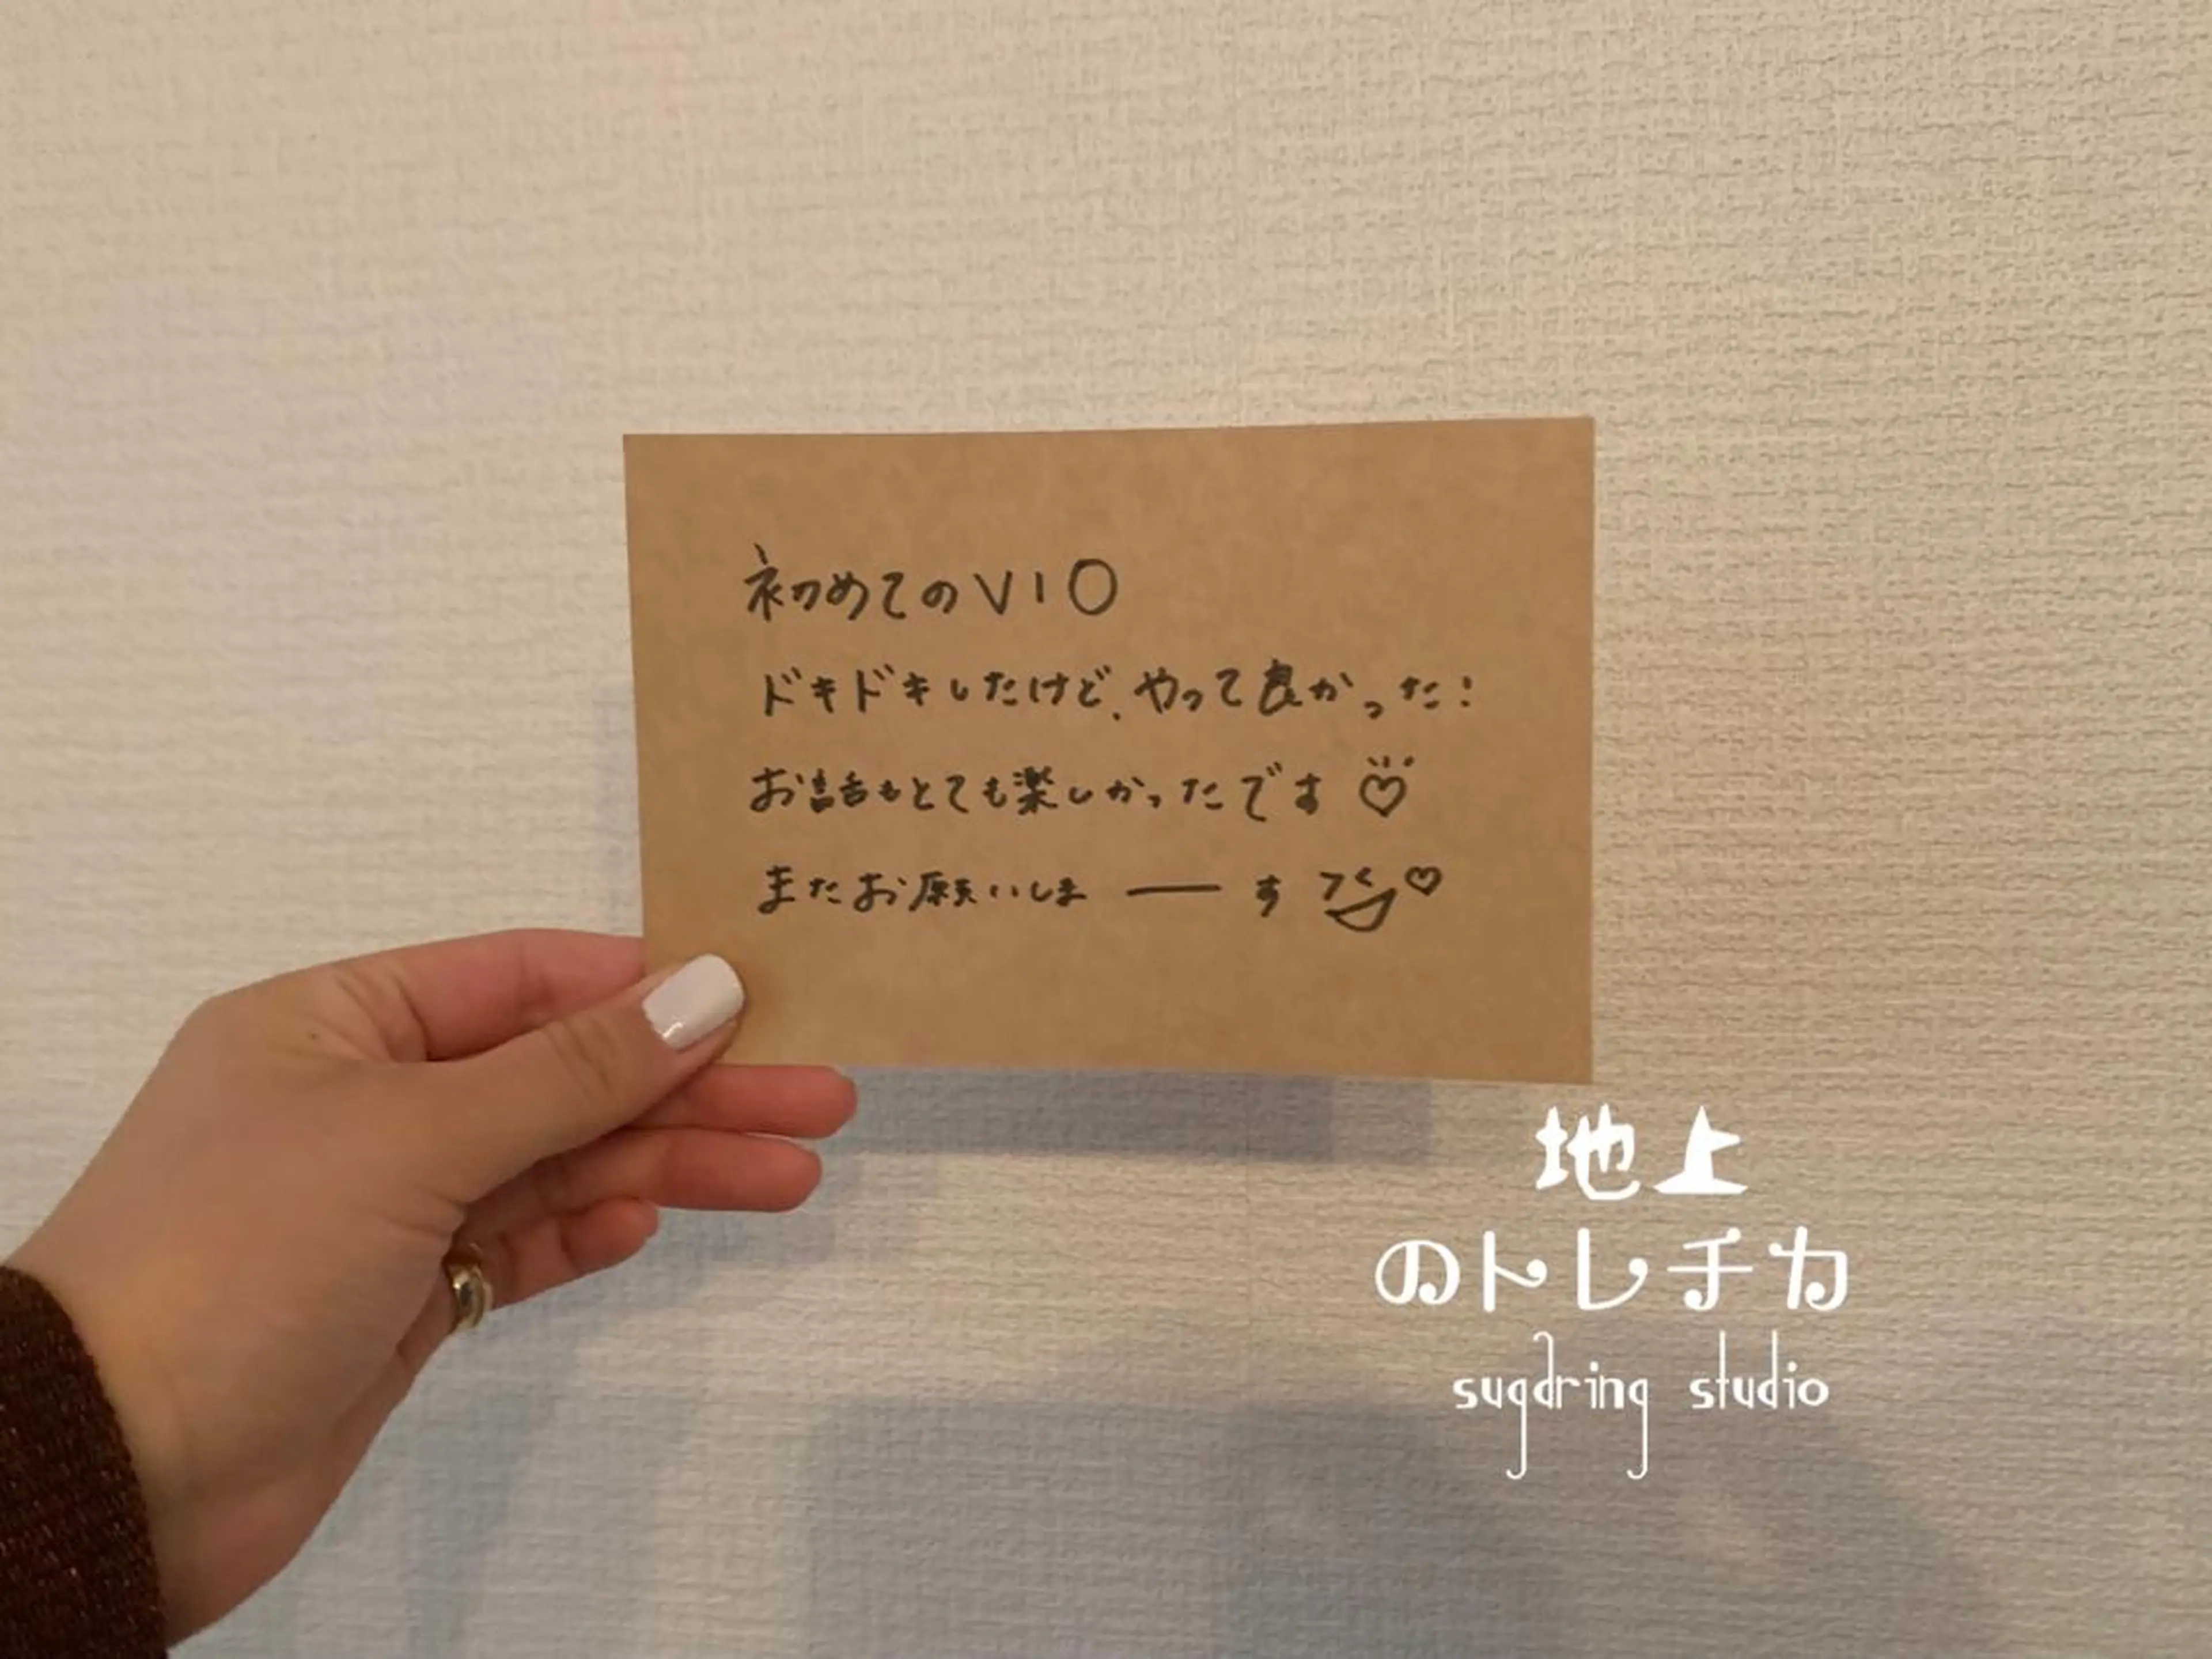 初めてのVIO
ドキドキしたけど、やって良かった!
お話もとても楽しかったです♡
またお願いしま ── す ♡
地上
のトレチカ
sugaring studio